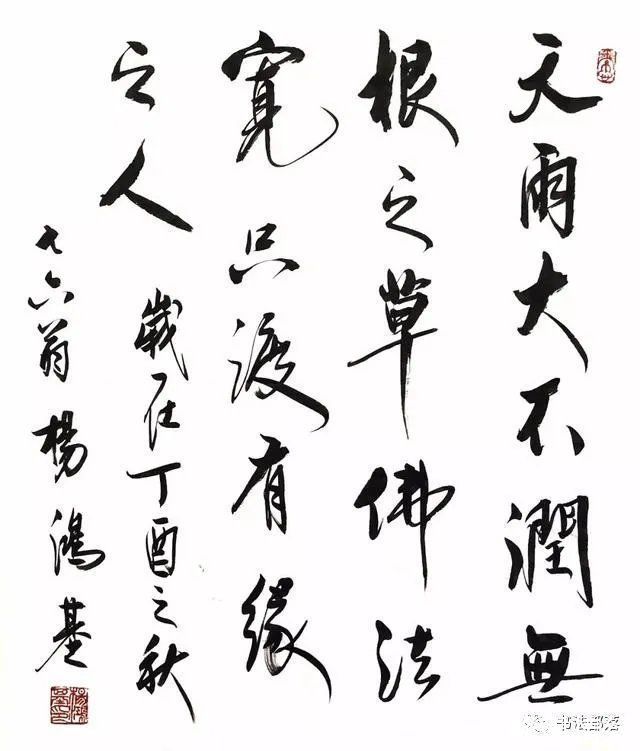 天雨大不潤無
根之草佛法
寬只渡有緣
之人
歲在丁酉之秋
七六翁楊鴻基
书法部落